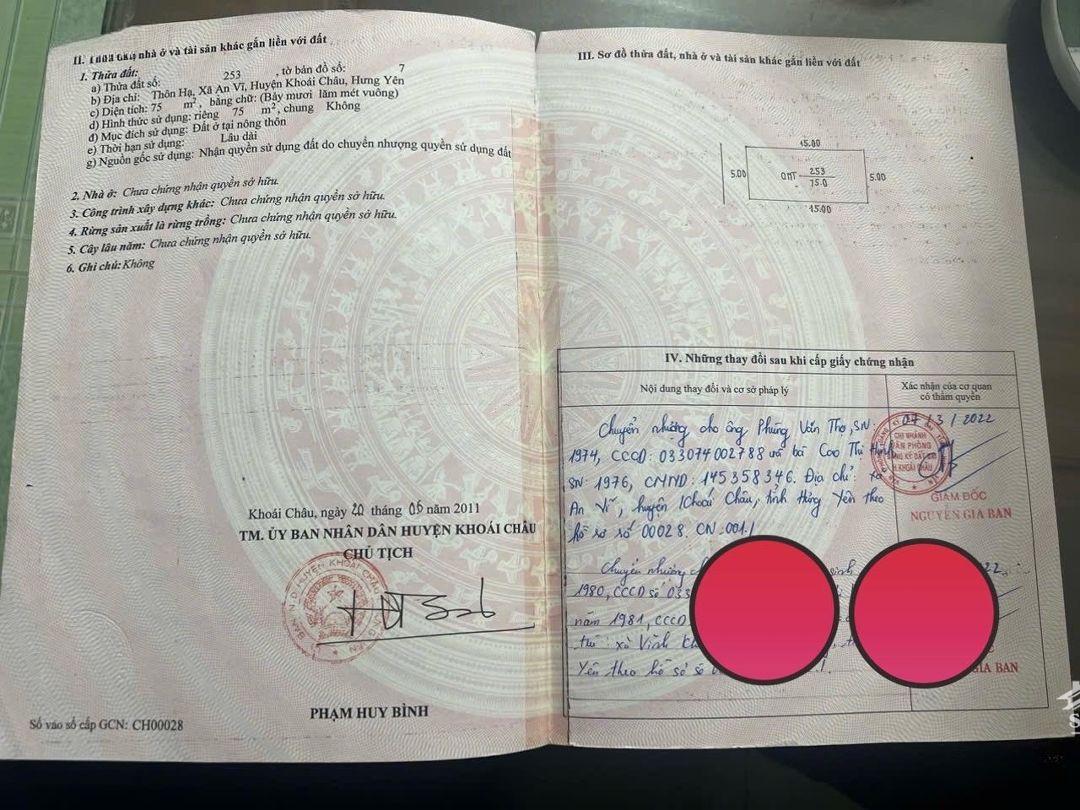 II. Thửa đất, nhà ở và tài sản khác gắn liền với đất
1. Thửa đất:
a) Thửa đất số: 253 , tờ bản đồ số: 7
b) Địa chỉ: Thôn Hạ, Xã An Vĩ, Huyện Khoái Châu, Hưng Yên
c) Diện tích: 75 m², bằng chữ: (Bảy mươi lăm mét vuông)
d) Hình thức sử dụng: riêng 75 m², chung Không
đ) Mục đích sử dụng: Đất ở tại nông thôn
e) Thời hạn sử dụng: Lâu dài
g) Nguồn gốc sử dụng: Nhận quyền sử dụng đất do chuyển nhượng quyền sử dụng đất
2. Nhà ở: Chưa chứng nhận quyền sở hữu.
3. Công trình xây dựng khác: Chưa chứng nhận quyền sở hữu.
4. Rừng sản xuất là rừng trồng: Chưa chứng nhận quyền sở hữu.
5. Cây lâu năm: Chưa chứng nhận quyền sở hữu.
6. Ghi chú: Không
Khoái Châu, ngày 20 tháng 05 năm 2011
TM. ỦY BAN NHÂN DÂN HUYỆN KHOÁI CHÂU
CHỦ TỊCH
PHẠM HUY BÌNH
Số vào sổ cấp GCN: CH00028
III. Sơ đồ thửa đất, nhà ở và tài sản khác gắn liền với đất
15.00
5.00 ONT 253 5.00
75.0
15.00
IV. Những thay đổi sau khi cấp giấy chứng nhận
Nội dung thay đổi và cơ sở pháp lý
Xác nhận của cơ quan
có thẩm quyền
Chuyển nhượng cho ông Phùng Văn Thọ, SN
1974, CCCD: 033074002788 và bà Cao Thị
SN: 1976, CMND: 145358346. Địa chỉ: xã
An Vĩ, huyện Khoái Châu, tỉnh Hưng Yên theo
hồ sơ số 00028. CN.001.
07/3/2022
CHI NHÁNH
VĂN PHÒNG
ĐĂNG KÝ ĐẤT ĐAI
H.KHOÁI CHÂU
GIÁM ĐỐC
NGUYỄN GIA BAN
Chuyển nhượng
1980, CCCD số 033
năm 1981, CCCD
xã Vĩnh
Yên theo hồ sơ số
GIA BAN